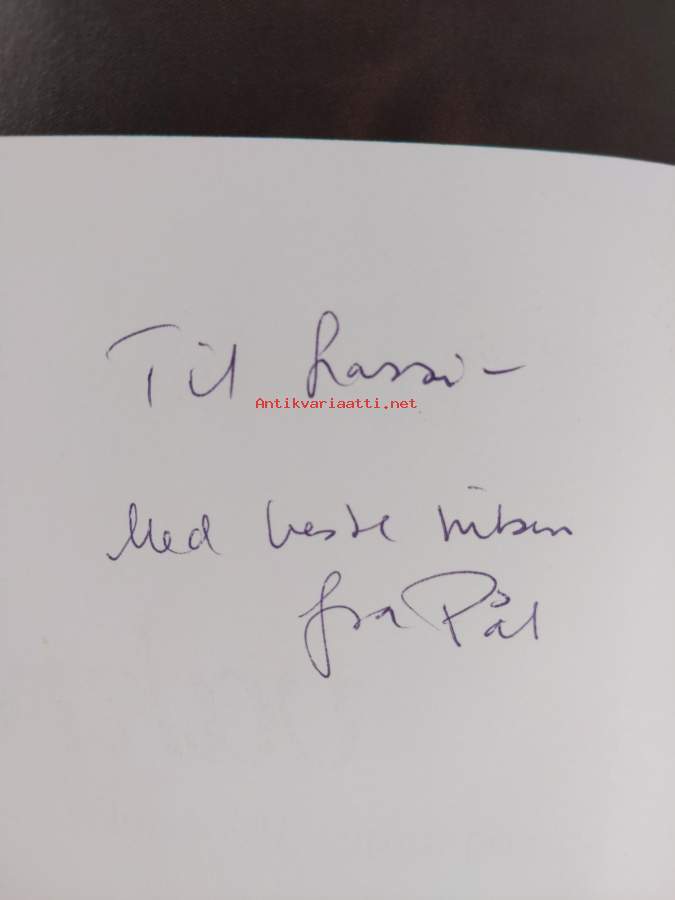 Til Lassi –
Antikvariaatti.net
Med beste hilsen
fra Pål